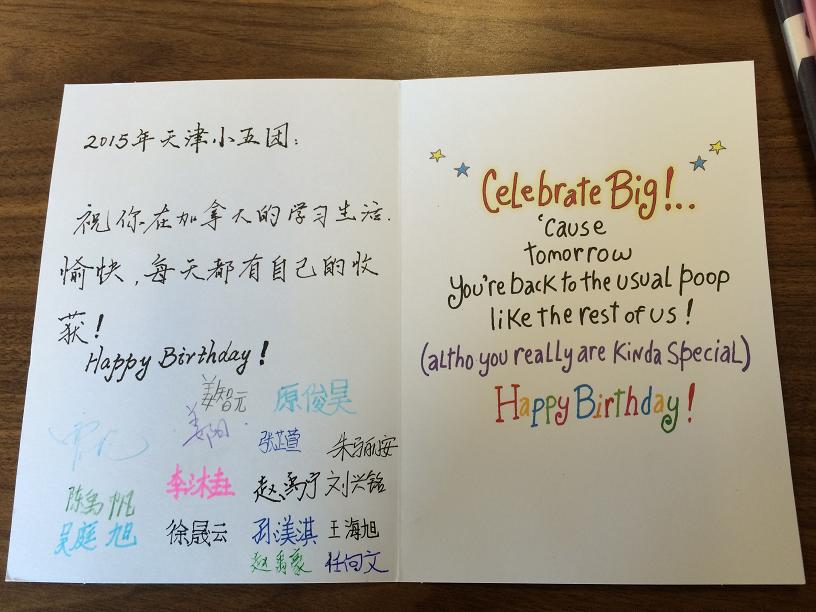 2015年天津小五团：
祝你在加拿大的学习生活
愉快，每天都有自己的收
获！
Happy Birthday!
原俊昊
朱
李沐
刘兴铭
徐晟云 孙漠淇 王海旭
吴庭旭
任向文
Celebrate Big!...
'cause
tomorrow
you're back to the usual poop
like the rest of us!
(altho you really are kinda special)
Happy Birthday!